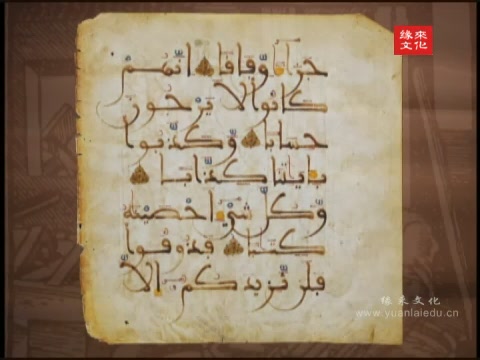 緣來
文化
جزاء وفاقا انهم
كانوا لا يرجون
حسابا وكذبوا
بايتنا كذابا
وكل شيء احصينه
كتبا فذوقوا
فلن نزيدكم الا
缘来文化
www.yuanlaiedu.cn